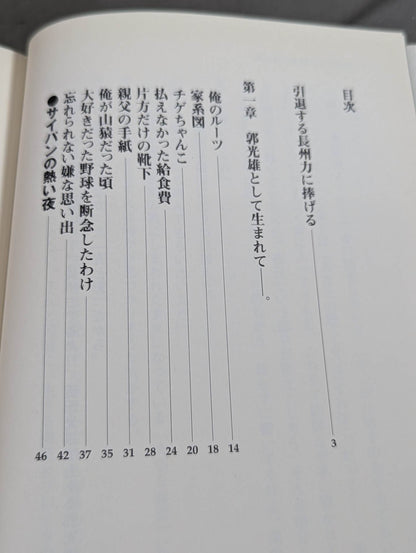 目次
引退する長州力に捧げる 3
第一章 郭光雄として生まれて──。
俺のルーツ 14
家系図 18
チゲちゃんこ 20
払えなかった給食費 24
片方だけの靴下 28
親父の手紙 31
俺が山猿だった頃 35
大好きだった野球を断念したわけ 37
忘れられない嫌な思い出 42
●サイパンの熱い夜 46